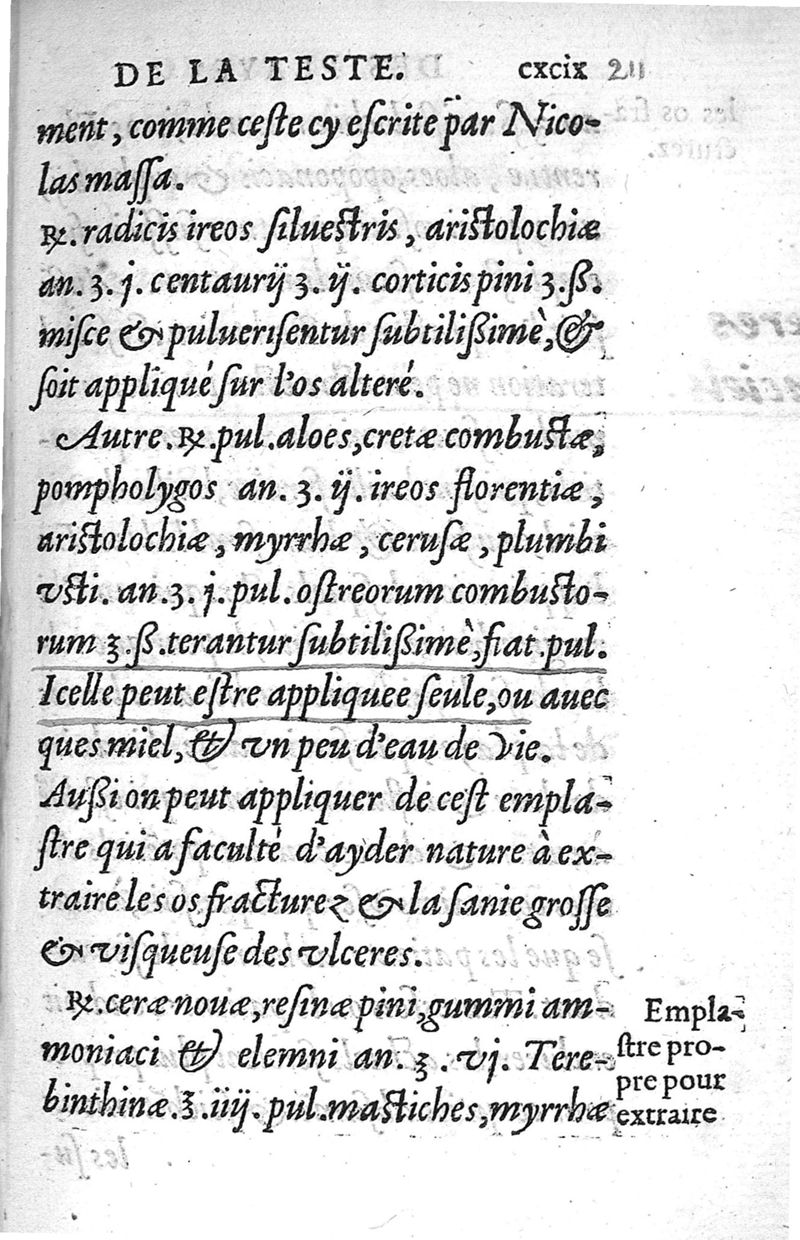 DE LA TESTE. cxcix 211
ment, comme ceſte cy eſcrite par Nico-
las maſſa.
℞. radicis ireos ſilueſtris, ariſtolochiæ
an. ʒ. j. centaurij ʒ. ij. corticis pini ʒ. ß.
miſce & pulueriſentur ſubtilißimè, &
ſoit appliqué ſur l'os alteré.
Autre. ℞. pul. aloes, cretæ combuſtæ,
pompholygos an. ʒ. ij. ireos florentiæ,
ariſtolochiæ, myrrhæ, ceruſæ, plumbi
vſti. an. ʒ. j. pul. oſtreorum combuſto-
rum ʒ. ß. terantur ſubtilißimè, fiat pul.
Icelle peut eſtre appliquee ſeule, ou auec
ques miel, & vn peu d'eau de vie.
Außi on peut appliquer de ceſt empla-
ſtre qui a faculté d'ayder nature à ex-
traire les os fracturez & la ſanie groſſe
& viſqueuſe des vlceres.
℞. ceræ nouæ, reſinæ pini, gummi am-
moniaci & elemni an. ʒ. vj. Tere-
binthinæ. ʒ. iiij. pul. maſtiches, myrrhæ
Empla-
ſtre pro-
pre pour
extraire